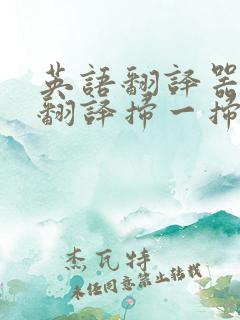 英語翻譯器
翻譯掃一掃
杰瓦特
未经同意禁止转载